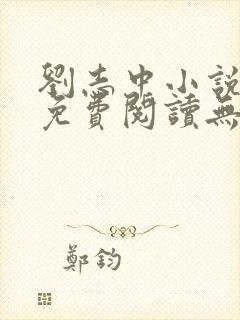 劉志中小說
免費閱讀無
鄭鈞